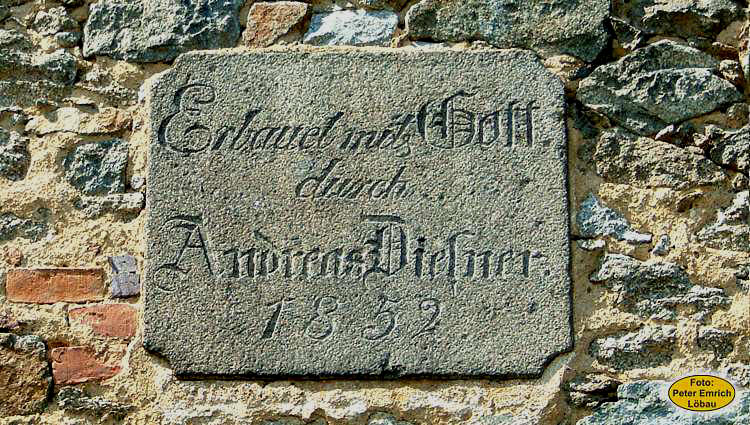 Erbauet mit Gott.
durch
Andreas Dieſner.
1852.
Foto:
Peter Emrich
Löbau